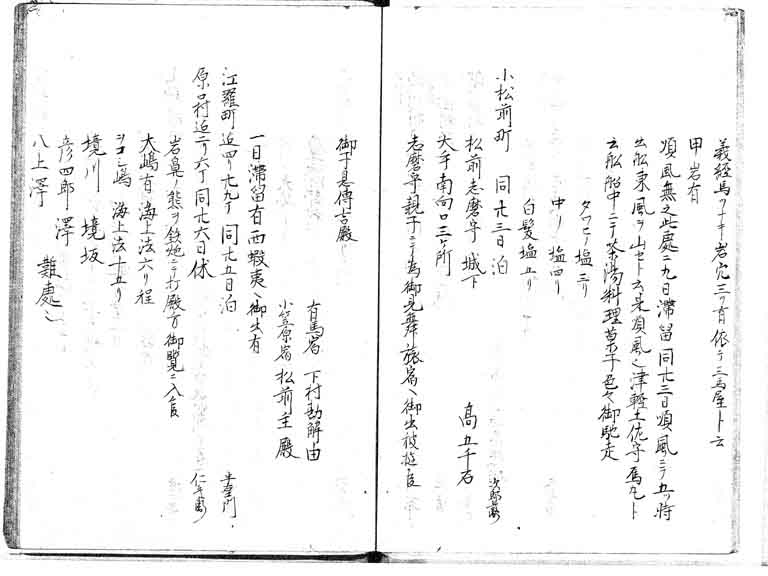 義経馬ツナキ岩穴三ツ有依テ三馬屋ト云
甲岩有
順風無之此處ニ九日滞留同廿三日順風ニテ五ツ時
出船東風ヲ山セト云是順風也津軽土佐守馬九ト
云船船中ニテ茶湯料理菓子色々御馳走
タツヒノ塩三リ
中ノ塩四リ
白髪塩五リ
小松前町 同廿三日泊 次郎兵衛
松前志磨守城下 高五千石
大手南向口三ケ所
志磨守親子ニテ為御見舞旅宿ヘ御出被成候
御子息傳吉殿
有馬宿 下村勘解由
小笠原宿 松前主殿
一日滞留有西蝦夷ヘ御出有
江羅町迄四リ廿九丁 同廿五日泊 半左衛門
原口村迄二リ六丁 同廿六日休 仁平衛
岩巣ノ熊ヲ鉄炮ニテ打殿方御覧ニ入候
大嶋有海上法六リ程
ヲコシ嶋 海上法十五リ
境川 境坂
彦四郎澤
八上澤 難處也